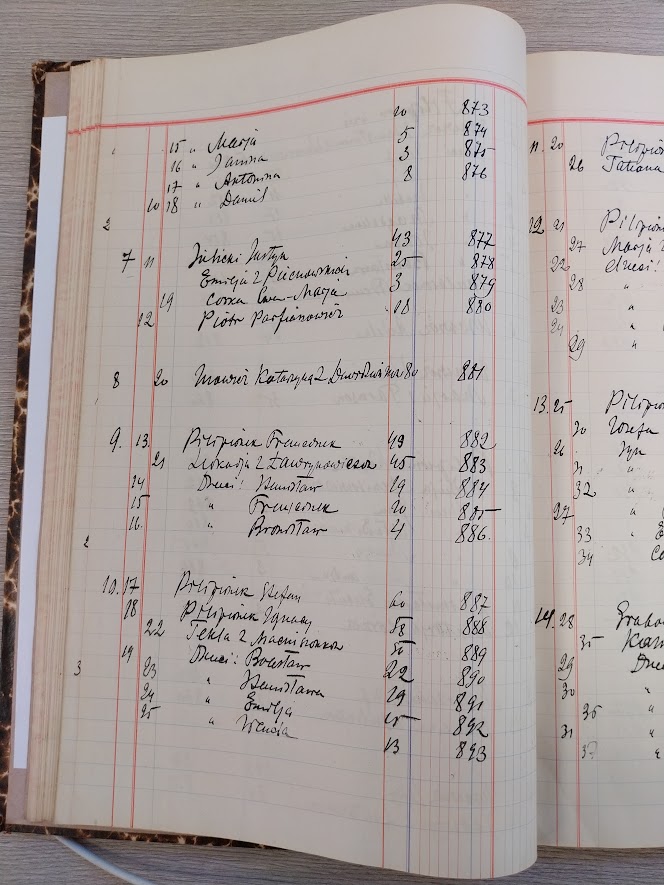 20 873
15 " Marja 5 874
16 " Janina 3 875
17 " Antonina 8 876
10 18 " Daniil
2
7 11 Justyn 43 877
Emilja z 25 878
córka Ewa-Marja 3 879
19
12 Piotr Parfianowicz 18 880
8 20 Katarzyna z 80 881
9. 13. Pilipionek Franciszek 49 882
21 Leokadja z Ławrynowiczów 45 883
14 Dzieci: Stanisław 19 884
15 " Franciszek 20 885
16. " Bronisław 4 886.
2
10. 17 Pilipionek Stefan 60 887
18 Pilipionek Ignacy 58 888
22 Tekla z 50 889
19 Dzieci: Bolesław 22 890
3 23 " Stanisława 19 891
24 " Emilja 15 892
25 " 13 893
11. 20 Pilipion
26 Tatiana
12 21 Pilipion
27 Marja z
22 dzieci:
28 "
23 "
24 "
29 "
13. 25 Pilipion
30 Józefa
26 syn
31 "
32 "
27 "
33 "
34
14. 28
35
29 Dzie
30 "
36 "
31 "
37 "